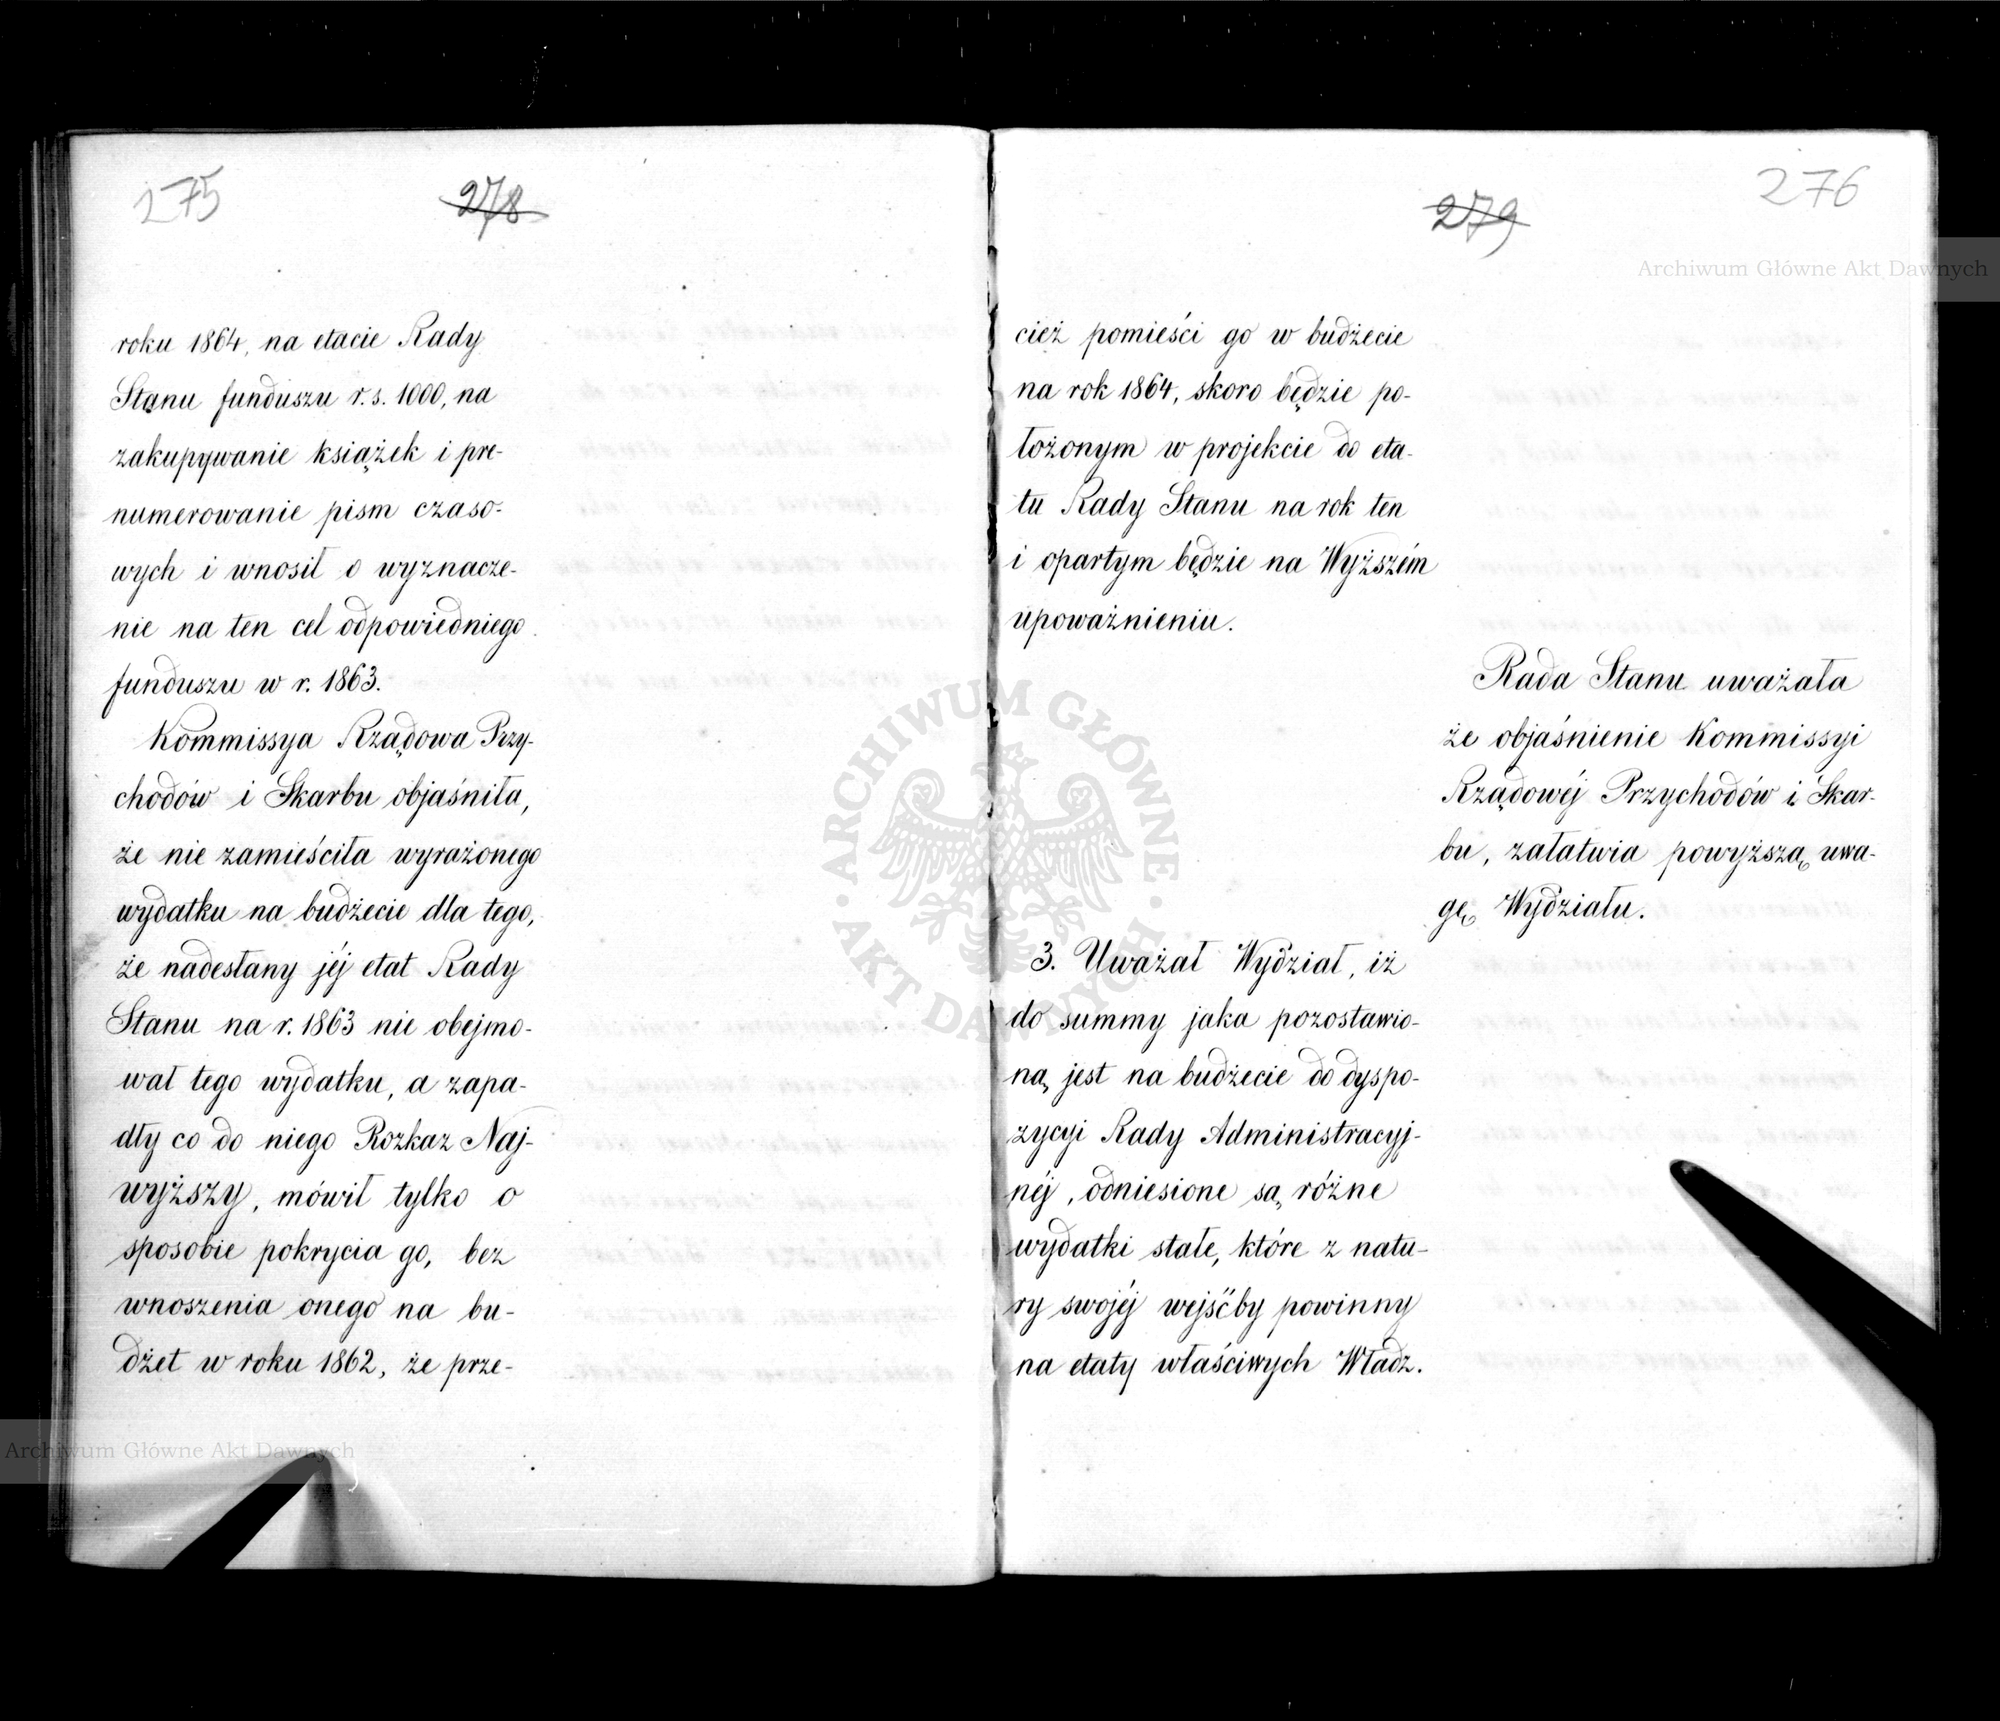 275
278
roku 1864, na etacie Rady
Stanu funduszu r. s. 1000, na
zakupywanie książek i pre-
numerowanie pism czaso-
wych i wnosił o wyznacze-
nie na ten cel odpowiedniego
funduszu w r. 1863.
Kommissya Rządowa Przy-
chodów i Skarbu objaśniła,
że nie zamieściła wyrażonego
wydatku na budżecie dla tego,
że nadesłany jéj etat Rady
Stanu na r. 1863 nie obejmo-
wał tego wydatku, a zapa-
dły co do niego Rozkaz Naj-
wyższy, mówił tylko o
sposobie pokrycia go, bez
wnoszenia onego na bu-
dżet w roku 1862, że prze-
279
276
cież pomieści go w budżecie
na rok 1864, skoro będzie po-
łożonym w projekcie do eta-
tu Rady Stanu na rok ten
i opartym będzie na Wyższém
upoważnieniu.
Rada Stanu uważała
że objaśnienie Kommissyi
Rządowéj Przychodów i Skar-
bu, załatwia powyższą uwa-
gę Wydziału.
3. Uważał Wydział, iż
do summy jaka pozostawio-
ną jest na budżecie do dyspo-
zycyi Rady Administracyj-
néj, odniesione są różne
wydatki stałe, które z natu-
ry swojéj wejśćby powinny
na etaty właściwych Władz.
Archiwum Główne Akt Dawnych
ARCHIWUM GŁÓWNE AKT DAWNYCH
Archiwum Główne Akt Dawnych